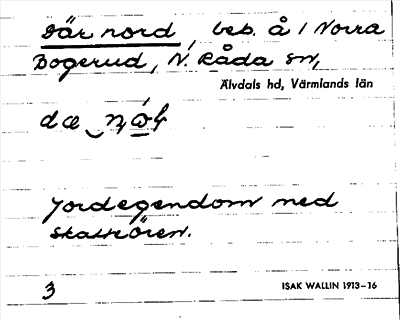 Där nord, beb. å i Norra
Bogerud, N. Råda sn,
Älvdals hd, Värmlands län
Jordegendom med
skattören.
3 ISAK WALLIN 1913–16